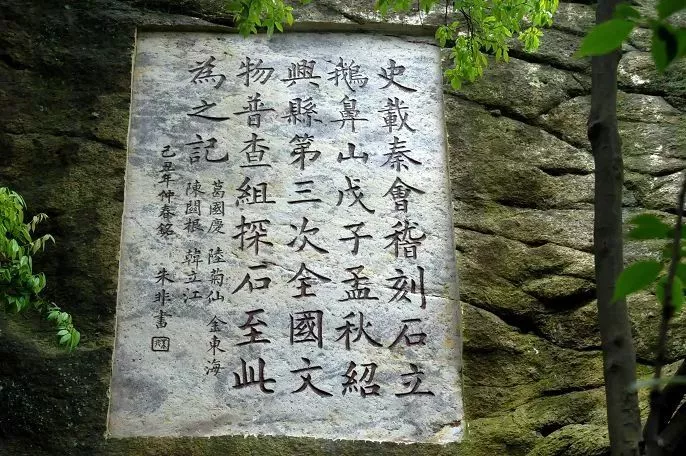 史載秦會稽刻石立
鵝鼻山戊子孟秋紹
興縣第三次全國文
物普查組探石至此
為之記
葛國慶 陸菊仙 金東海
陳國根 韓立江
己丑年仲春銘 朱非書